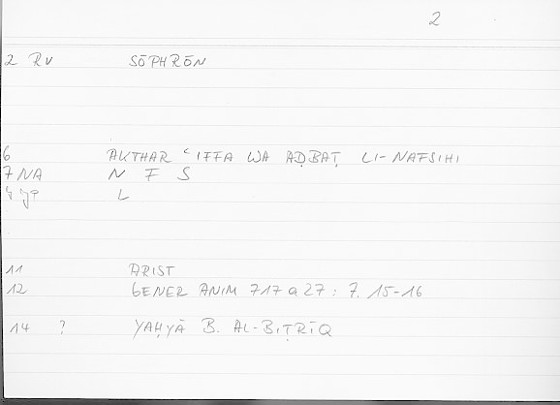 2
2 RV SŌPHRŌN
6 AKTHAR ʿIFFA WA AḌBAṬ LI-NAFSIHI
7 NA N F S
L
11 ARIST
12 GENER ANIM 717 a 27 : 7. 15-16
14 ? YAḤYĀ B. AL-BIṬRĪQ